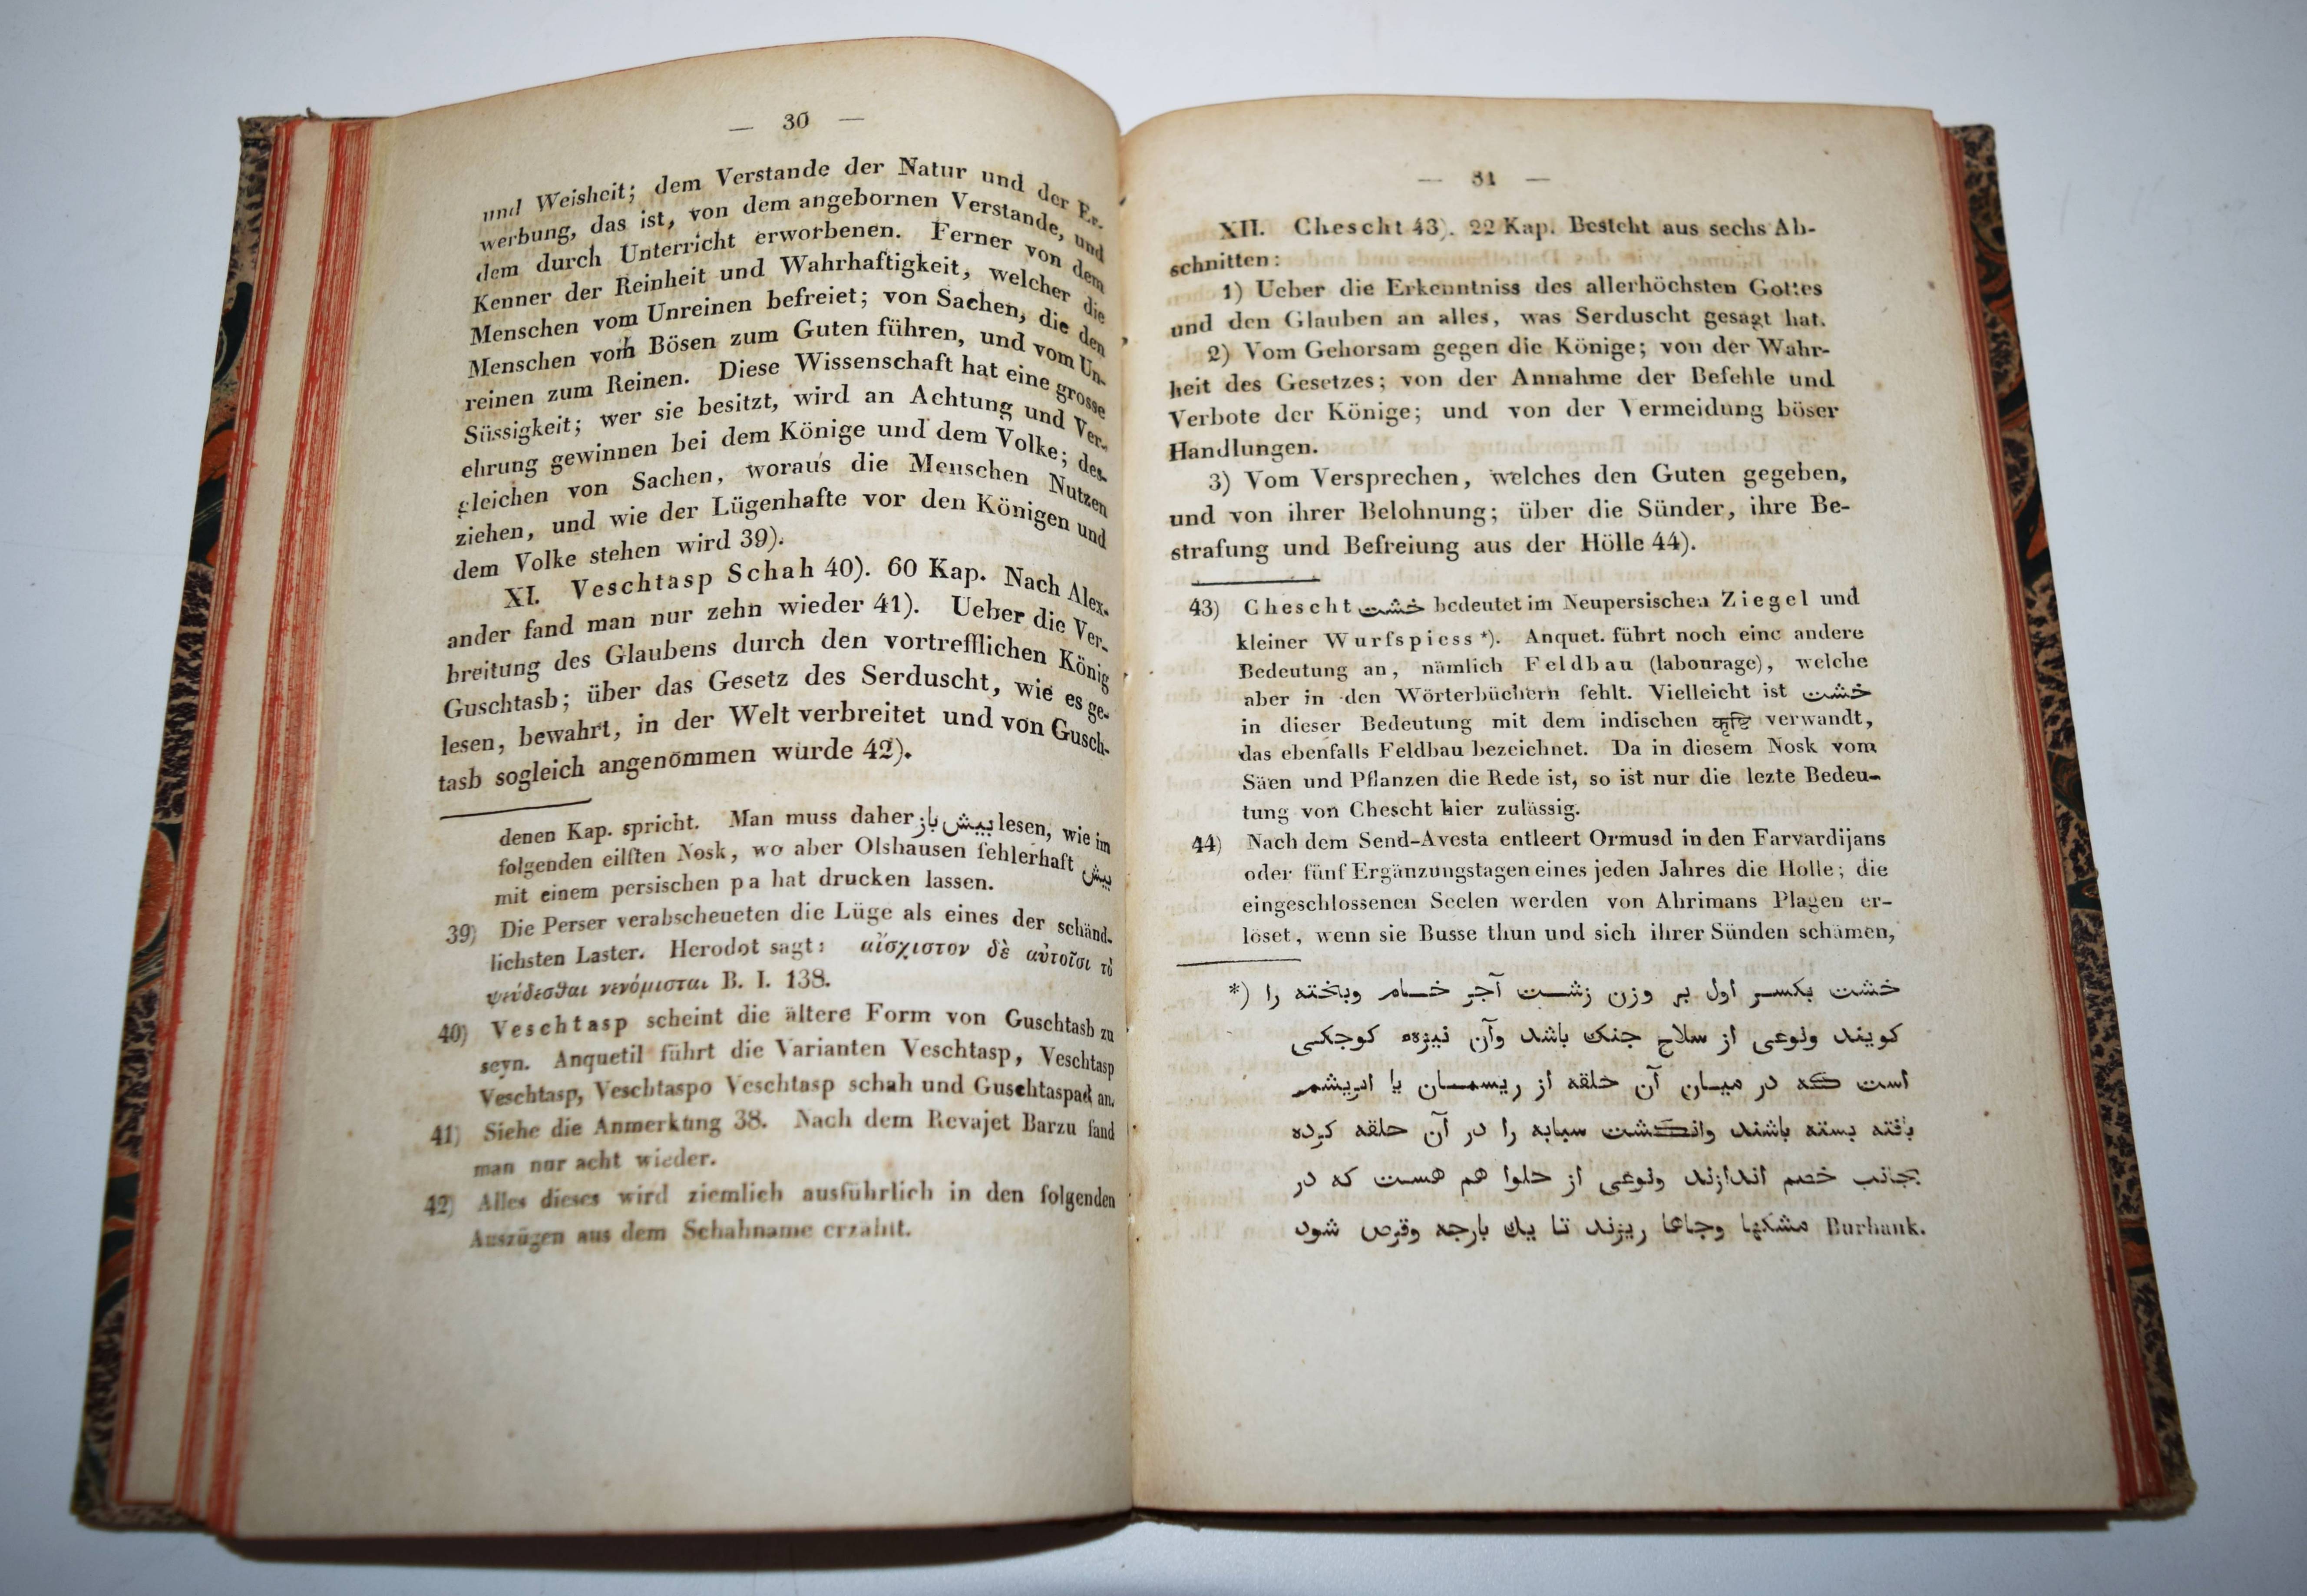 — 30 —
und Weisheit; dem Verstande der Natur und der Er-
werbung, das ist, von dem angebornen Verstande, und
dem durch Unterricht erworbenen. Ferner von dem
Kenner der Reinheit und Wahrhaftigkeit, welcher die
Menschen vom Unreinen befreiet; von Sachen, die den
Menschen vom Bösen zum Guten führen, und vom Un-
reinen zum Reinen. Diese Wissenschaft hat eine grosse
Süssigkeit; wer sie besitzt, wird an Achtung und Ver-
ehrung gewinnen bei dem Könige und dem Volke; des-
gleichen von Sachen, woraus die Menschen Nutzen
ziehen, und wie der Lügenhafte vor den Königen und
dem Volke stehen wird 39).
XI. Veschtasp Schah 40). 60 Kap. Nach Alex-
ander fand man nur zehn wieder 41). Ueber die Ver-
breitung des Glaubens durch den vortrefflichen König
Guschtasb; über das Gesetz des Serduscht, wie es ge-
lesen, bewahrt, in der Welt verbreitet und von Gusch-
tasb sogleich angenommen wurde 42).
denen Kap. spricht. Man muss daher بيش باز lesen, wie im
folgenden eilften Nosk, wo aber Olshausen fehlerhaft پيش
mit einem persischen pa hat drucken lassen.
39) Die Perser verabscheueten die Lüge als eines der schänd-
lichsten Laster. Herodot sagt: αἴσχιστον δὲ αὐτοῖσι τὸ
ψεύδεσθαι νενόμισται B. I. 138.
40) Veschtasp scheint die ältere Form von Guschtasb zu
seyn. Anquetil führt die Varianten Veschtasp, Veschtasp
Veschtasp, Veschtaspo Veschtasp schah und Guschtaspad an.
41) Siehe die Anmerkung 38. Nach dem Revajet Barzu fand
man nur acht wieder.
42) Alles dieses wird ziemlich ausführlich in den folgenden
Auszügen aus dem Schahname erzählt.
— 31 —
XII. Chescht 43). 22 Kap. Besteht aus sechs Ab-
schnitten:
1) Ueber die Erkenntniss des allerhöchsten Gottes
und den Glauben an alles, was Serduscht gesagt hat.
2) Vom Gehorsam gegen die Könige; von der Wahr-
heit des Gesetzes; von der Annahme der Befehle und
Verbote der Könige; und von der Vermeidung böser
Handlungen.
3) Vom Versprechen, welches den Guten gegeben,
und von ihrer Belohnung; über die Sünder, ihre Be-
strafung und Befreiung aus der Hölle 44).
43) Chescht خشت bedeutet im Neupersischen Ziegel und
kleiner Wurfspiess *). Anquet. führt noch eine andere
Bedeutung an, nämlich Feldbau (labourage), welche
aber in den Wörterbüchern fehlt. Vielleicht ist خشت
in dieser Bedeutung mit dem indischen कृष्टि verwandt,
das ebenfalls Feldbau bezeichnet. Da in diesem Nosk vom
Säen und Pflanzen die Rede ist, so ist nur die lezte Bedeu-
tung von Chescht hier zulässig.
44) Nach dem Send-Avesta entleert Ormusd in den Farvardijans
oder fünf Ergänzungstagen eines jeden Jahres die Hölle; die
eingeschlossenen Seelen werden von Ahrimans Plagen er-
löset, wenn sie Busse thun und sich ihrer Sünden schämen,
*) خشت بكسر اول بر وزن زشت آجر خام وپخته را
كويند ونوعى از سلاح جنك باشد وآن نيزهه كوچكى
است كه در ميان آن حلقه از ريسمان يا ابريشم
بافته بسته باشند وانكشت سبابه را در آن حلقه كرده
بجانب خصم اندازند ونوعى از حلوا هم هست كه در
مشكها وجاعا ريزند تا يك پارچه وقرص شود Burhank.